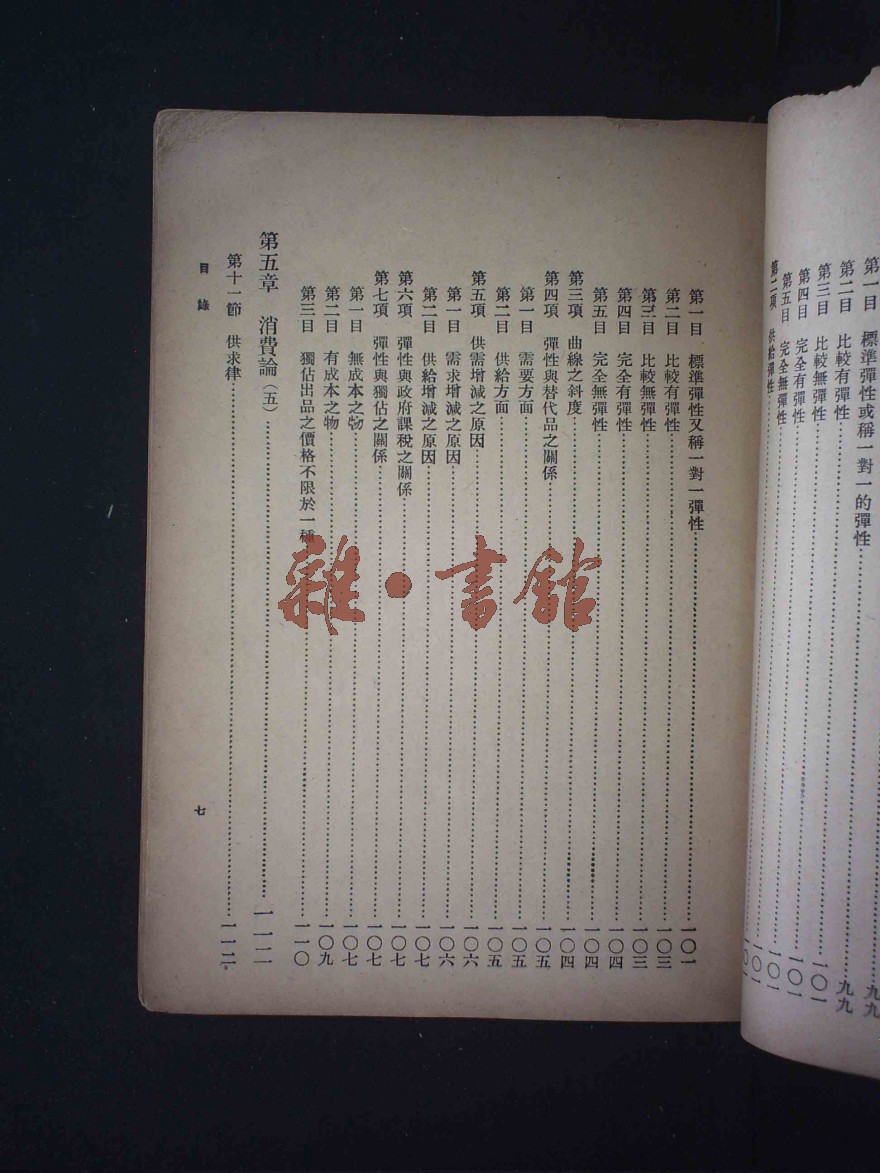 第一目 標準彈性或稱一對一的彈性……九九
第二目 比較有彈性……九九
第三目 比較無彈性……一〇一
第四目 完全有彈性……一〇一
第五目 完全無彈性……一〇一
第二項 供給彈性……一〇一
第一目 標準彈性又稱一對一彈性……一〇一
第二目 比較有彈性……一〇三
第三目 比較無彈性……一〇三
第四目 完全有彈性……一〇四
第五目 完全無彈性……一〇四
第三項 曲線之斜度……一〇四
第四項 彈性與替代品之關係……一〇五
第一目 需要方面……一〇五
第二目 供給方面……一〇五
第五項 供需增減之原因……一〇六
第一目 需求增減之原因……一〇六
第二目 供給增減之原因……一〇七
第六項 彈性與政府課稅之關係……一〇七
第七項 彈性與獨佔之關係……一〇七
第一目 無成本之物……一〇七
第二目 有成本之物……一〇九
第三目 獨佔出品之價格不限於一種……一一〇
第五章 消費論(五)……一一二
第十一節 供求律……一一二
目錄
七
雜·書館